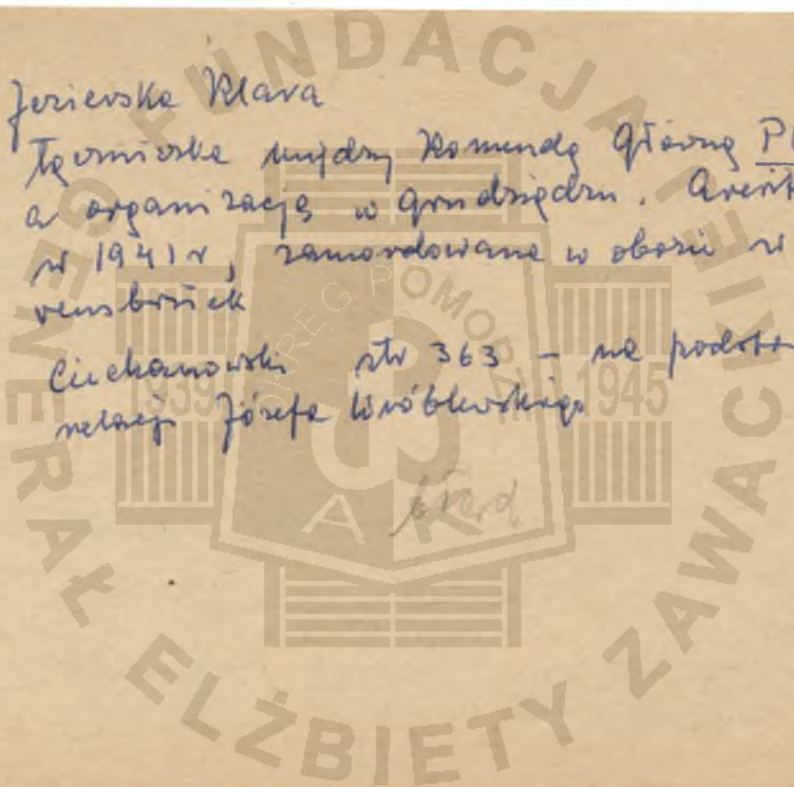 Jezierska Klara
Łączniczka między Komendą Główną
a organizacją w Grudziądzu.
w 1941 r, zamordowana w obozie w
rensbrück
Ciechanowski str 363 – na
relacji Józefa Wróblewskiego
błąd
FUNDACJA
GENERAŁ ELŻBIETY ZAWACKIEJ
OKRĘG POMORZE
1939
1945
AK